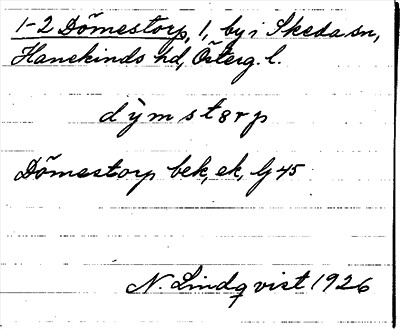 1-2 Dömestorp, 1, by i Skeda sn,
Hanekinds hd, Österg. l.
dỳmstərp
Dömestorp bek, ek, lj 45
N. Lindqvist 1926